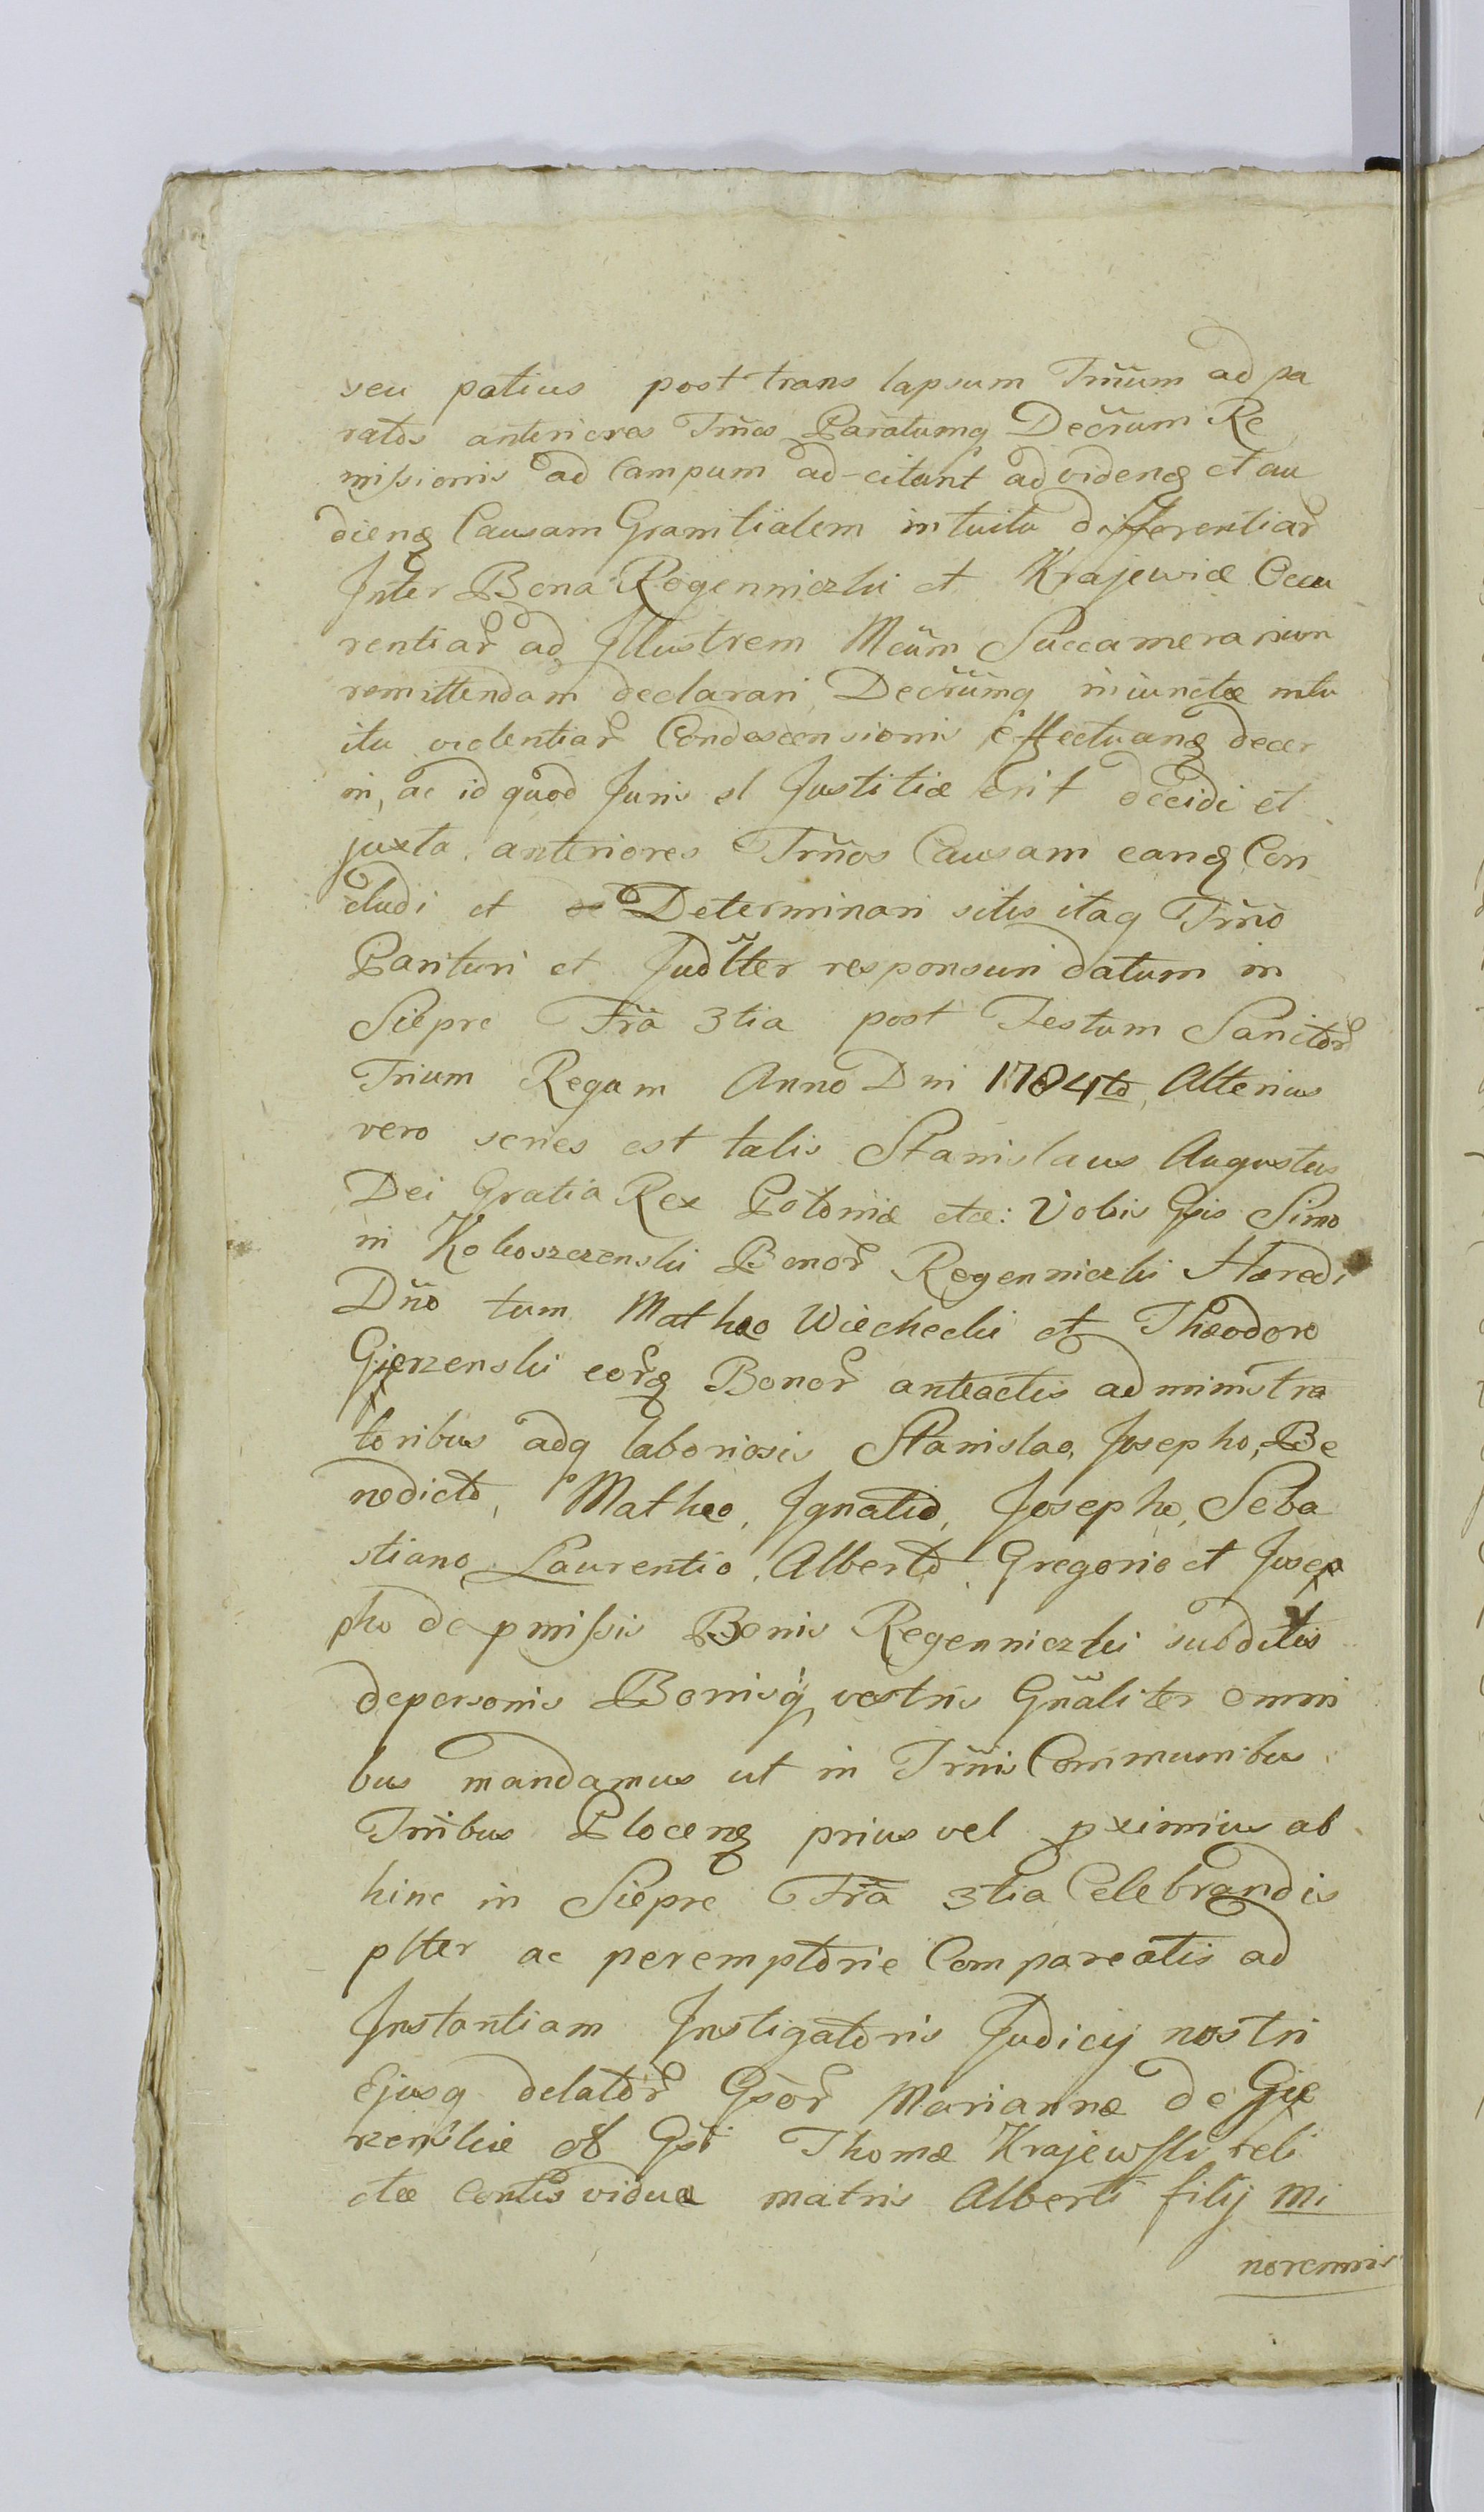 seu potius post trans lapsum Tm̃um ad pa
ratos anteriores Tm̃os Paratumq Decr̃um Re
missionis ad Campum ad-citant ad videnꝫ et au
dienꝫ Causam Granitialem intuitu differentiar̃
Inter Bona Rogenniczki et Krajewiæ Occu
rentiar̃ ad Illustrem Mcũm Succamerarium
remittendam declarari, Decr̃umq iniunctæ intu
itu violentiar̃ Condescensionis effectuanꝫ decer
ni, ac id quod Juris et Justitiæ erit decidi et
juxta anteriores Tm̃os Causam eanꝫ Con
cludi et de Determinari sitis itaq Tm̃o
Parituri et Judltter responsuri datum in
Siepre Fr̃a 3tia post Festum Sanctor̃
Trium Regum Anno Dni 1784to, Alterius
vero series est talis Stanislaus Augustus
Dei Gratia Rex Poloniæ etc: Vobis Gsis Simo
ni Kokoszczenski Bonor̃ Regenniczki Hæredi
Dño tum Mathæo Wiechecki et Theodoro
Gierzenski eor̃ꝫ Bonor̃ anteactis administra
toribus adq laboriosis Stanislao, Josepho, Be
nedicto, Matheo, Ignatio, Josepho, Seba
stiano, Laurentio, Alberto, Gregorio et Josep
pho de pmissis Bonis Regenniczki subditis
de personis Bonisq vestris Gñaliter omni
bus mandamus ut in Tm̃is Communibus
Tm̃ibus Plocenꝫ prius vel pximius ab
hinc in Siepre Fr̃a 3tia Celebrandis
pltter ac peremptorie Compareatis ad
Instantiam Instigatoris Judicij nostri
Ejusq delator̃ Gsor̃ Mariannæ de Gie
rzenskie ol Gsi Thomæ Krajewski reli
ctæ Contis viduæ matris Alberti filij mi
norennis